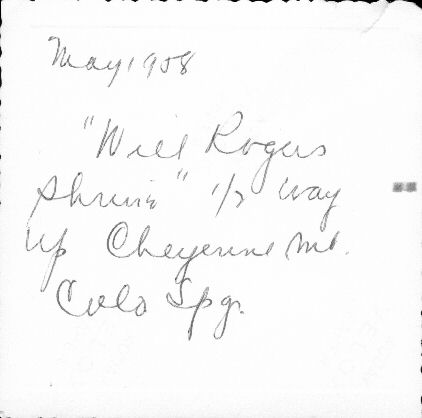 May 1958
"Will Rogers
Shrine" 1/2 way
up Cheyenne Mt.
Colo Spgs.